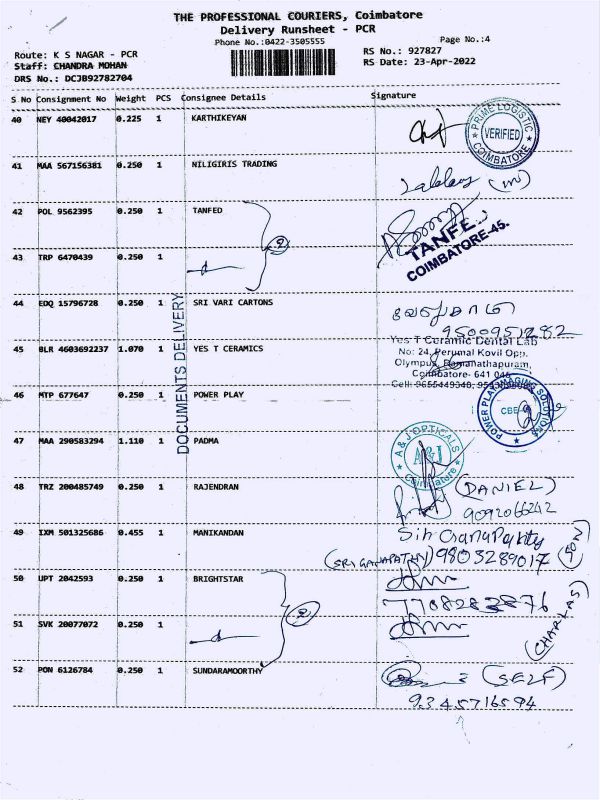 THE PROFESSIONAL COURIERS, Coimbatore
Delivery Runsheet - PCR
Phone No.:0422-3505555
Page No.:4
Route: K S NAGAR - PCR
RS No.: 927827
Staff: CHANDRA MOHAN
RS Date: 23-Apr-2022
DRS No.: DCJB92782704
S No Consignment No Weight PCS Consignee Details Signature
40 NEY 40042017 0.225 1 KARTHIKEYAN
PRIME LOGISTIC
VERIFIED
COIMBATORE
41 MAA 567156381 0.250 1 NILIGIRIS TRADING
42 POL 9562395 0.250 1 TANFED
43 TRP 6470439 0.250 1
2
TANFED
COIMBATORE-45.
44 EDQ 15796728 0.250 1 SRI VARI CARTONS
9500951282
DOCUMENTS DELIVERY
45 BLR 4603692237 1.070 1 YES T CERAMICS
Yes T Ceramic Dental Lab
No: 24, Perumal Kovil Opp.
Olympus, Ramanathapuram,
Coimbatore- 641 045
Cell: 9655449348,
46 MTP 677647 0.250 1 POWER PLAY
POWER PLAY IMAGING SOLUTIONS
CBE
47 MAA 290583294 1.110 1 PADMA
A&J OPTICALS
A&J
Coimbatore
48 TRZ 200485749 0.250 1 RAJENDRAN
(DANIEL)
9092066242
49 IXM 501325686 0.455 1 MANIKANDAN
(SRI GANAPATHY) 9803289017 (SON)
50 UPT 2042593 0.250 1 BRIGHTSTAR
7708282876
51 SVK 20077072 0.250 1
2
52 PON 6126784 0.250 1 SUNDARAMOORTHY
(SELF)
9345716594